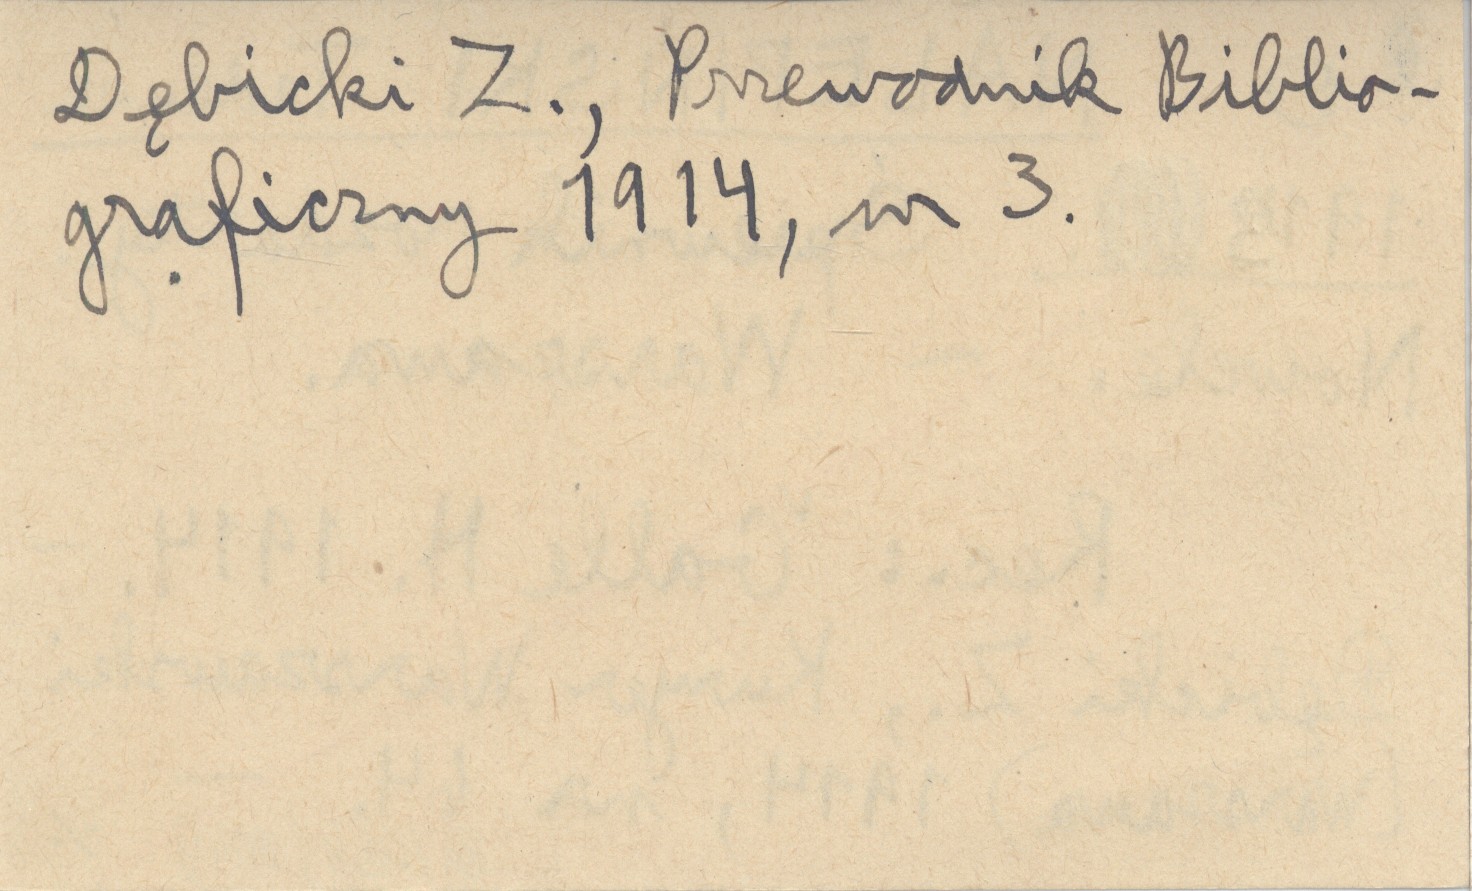 Dębicki Z., Przewodnik Biblio-
graficzny 1914, nr 3.